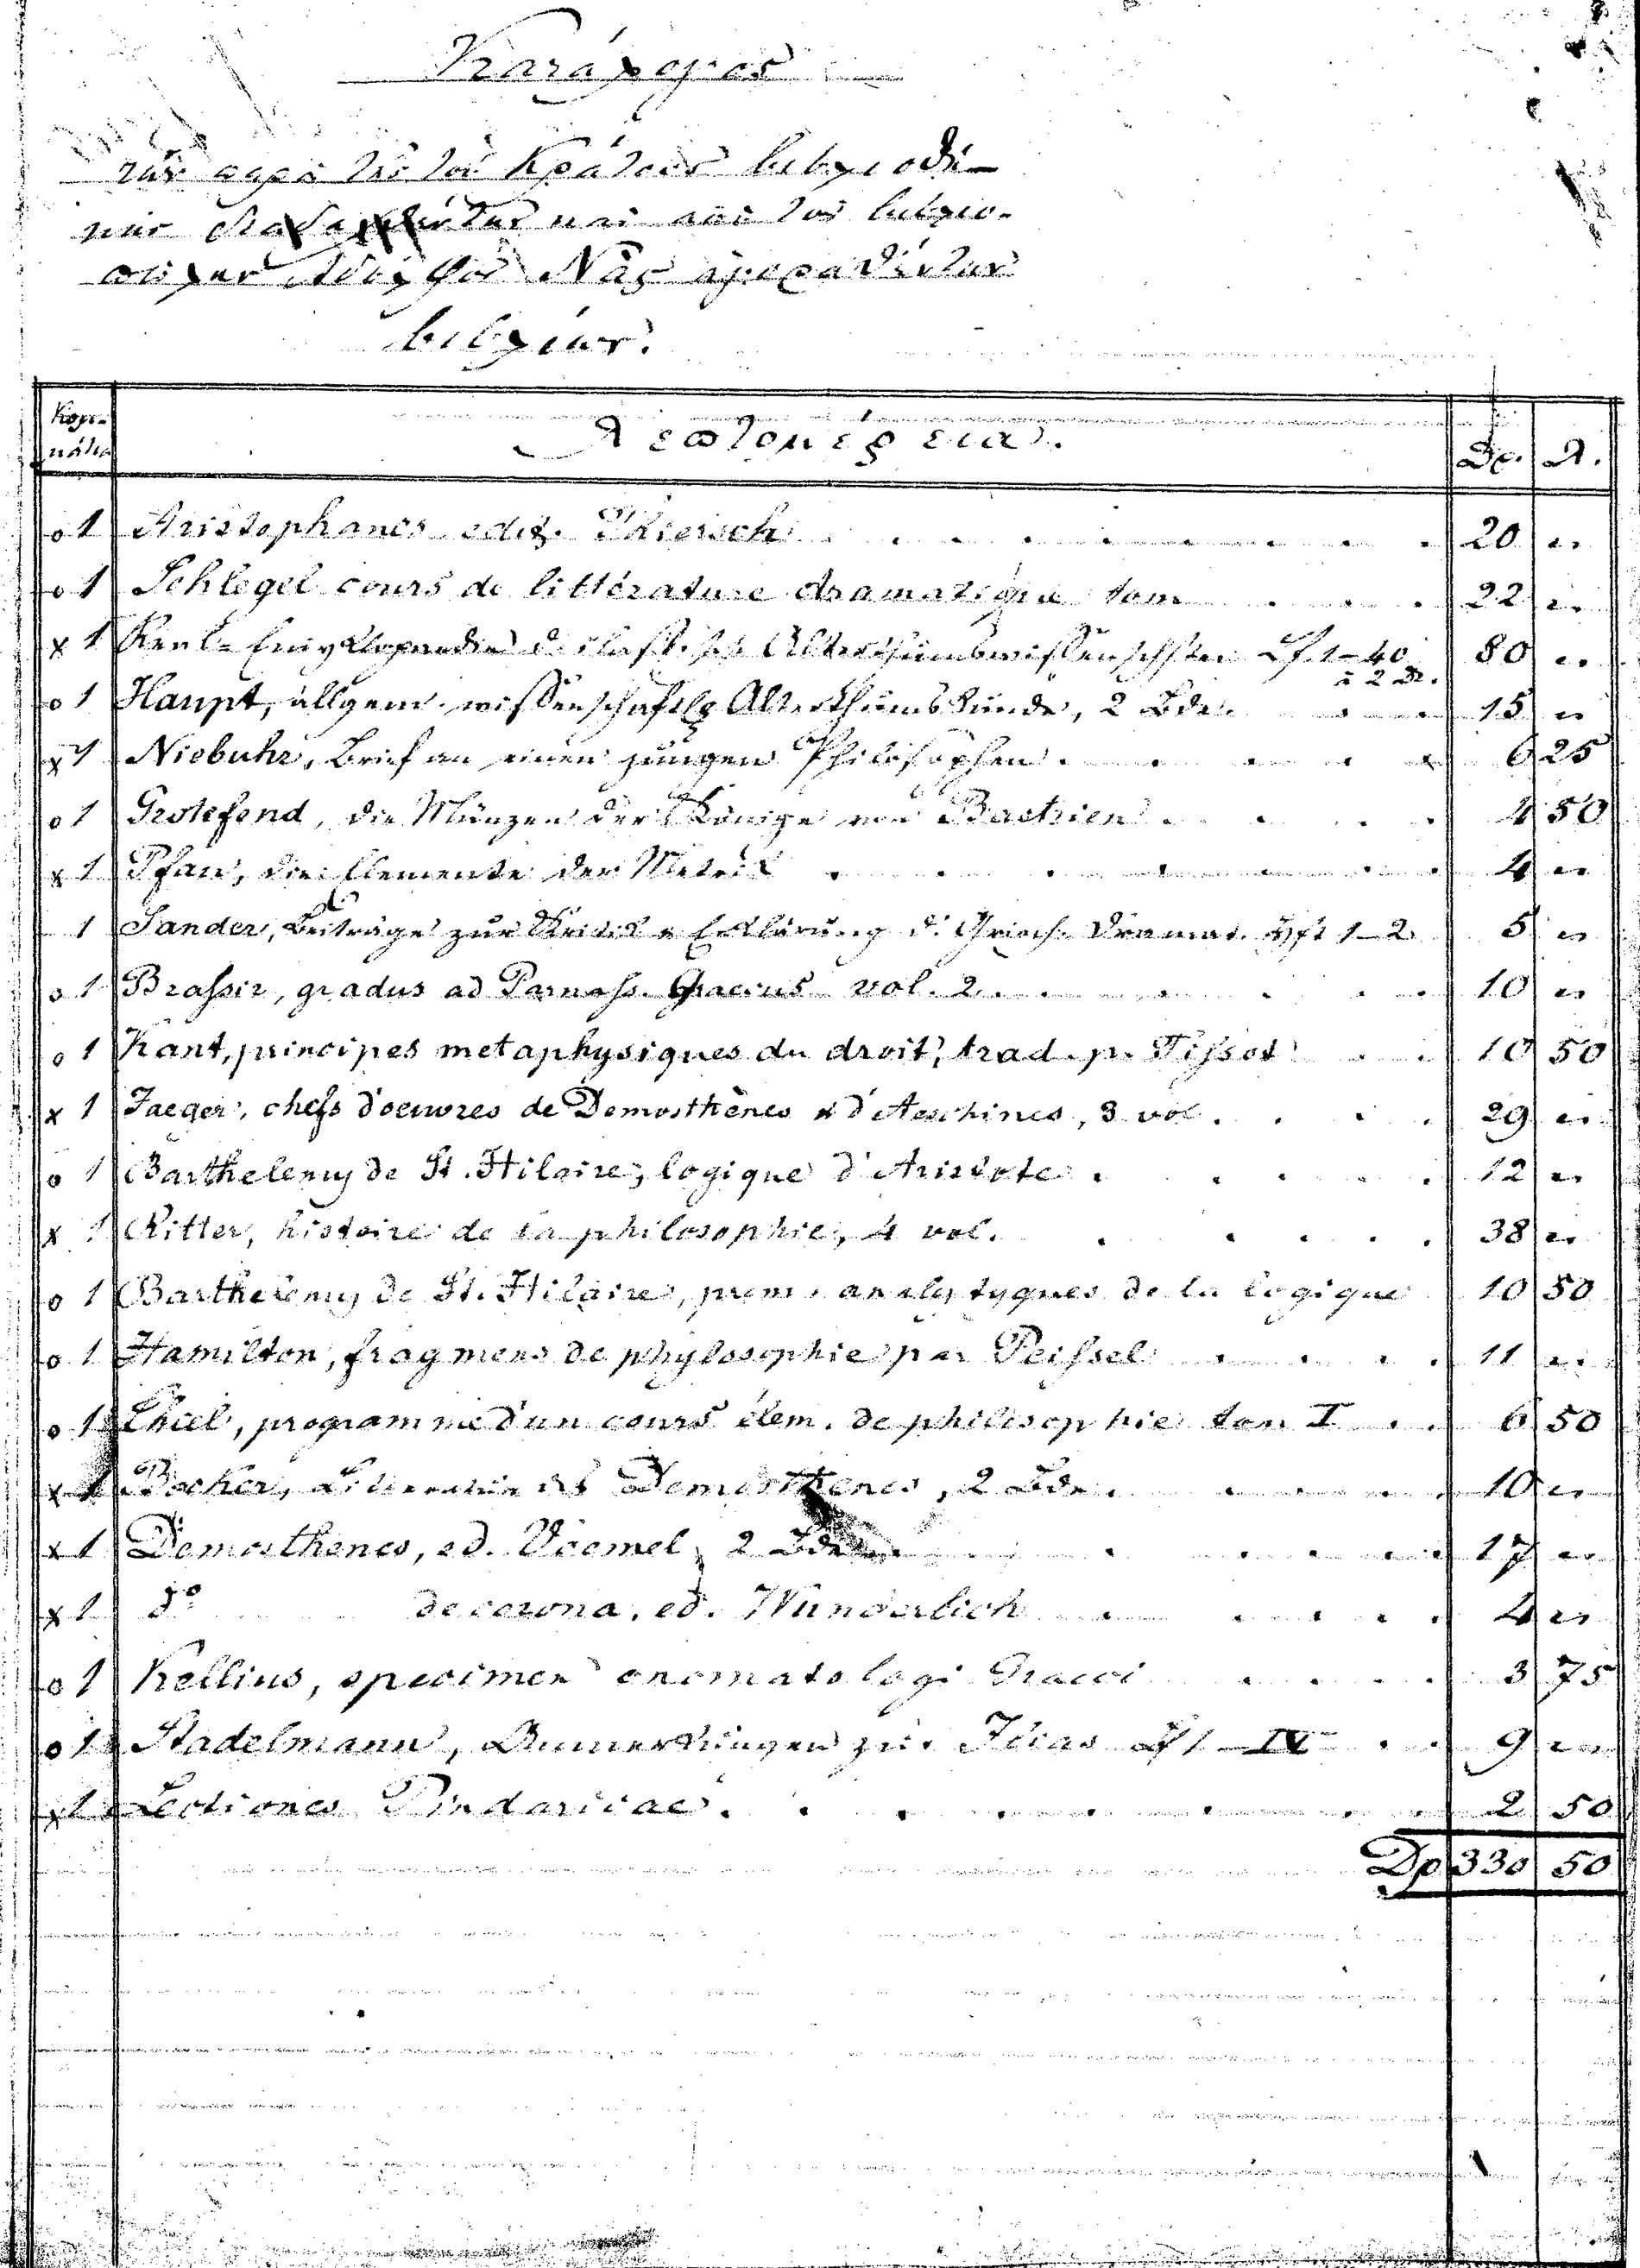 Κατάλογος
τῶν παρὰ τοῦ τοῦ Κράτους βιβλιοδέ-
του καὶ ἀπὸ τοῦ βιβλιο-
πώλου Νὰσ ἀγορασθέντων
βιβλίων.
Κομμάτια Λεπτομέρεια. Δρ. Λ.
o 1 Aristophanes edit. Thiersch 20 "
o 1 Schlegel cours de littérature dramatique tom 22 "
x 1 Real-Encyklopaedie d. classischen Alterthumswissenschften Lf. 1–40 à 2 Dr. 80 "
o 1 Haupt, allgem. wissenschaftlg Alterthumskunde, 2 Bde. 15 "
x 1 Niebuhr, Brief an einen jungen Philosophen 0 25
o 1 Grotefend, die Münzen der Könige von Bactrien 4 50
x 1 Pfau, die Elemente der Metrik 4 "
1 Sander, Beiträge zur Kritik u Erklärung d. Griech. Dramat. Hft 1–2 5 "
o 1 Brassir, gradus ad Parnass. Graecus vol. 2. 10 "
o 1 Kant, principes metaphysiques du droit, trad. p. Tissot 10 50
x 1 Jaeger, chefs d'oeuvres de Demosthènes & d'Aeschines, 3 vol. 29 "
o 1 Barthelemy de St. Hilaire, logique d'Aristote 12 "
x 1 Ritter, histoire de la philosophie, 4 vol. 38 "
o 1 Barthelemy de St. Hilaire, prem. analytyques de la logique 10 50
o 1 Hamilton, fragmens de phylosophie par Peissel 11 "
o 1 Thiel, programme d'un cours élem. de philosophie tom I 6 50
x 1 Becker, Demosthenes, 2 Bde. 10 "
x 1 Demosthenes, ed. Voemel, 2 Bde 17 "
x 1 do de corona, ed. Wunderlich 4 "
o 1 Kellius, specimen onomatologi Graeci 3 75
o 1 Stadelmann, Anmerkungen zur Ilias I–IV 9 "
x 1 Lectiones Pindaricae. 2 50
Δρ 330 50